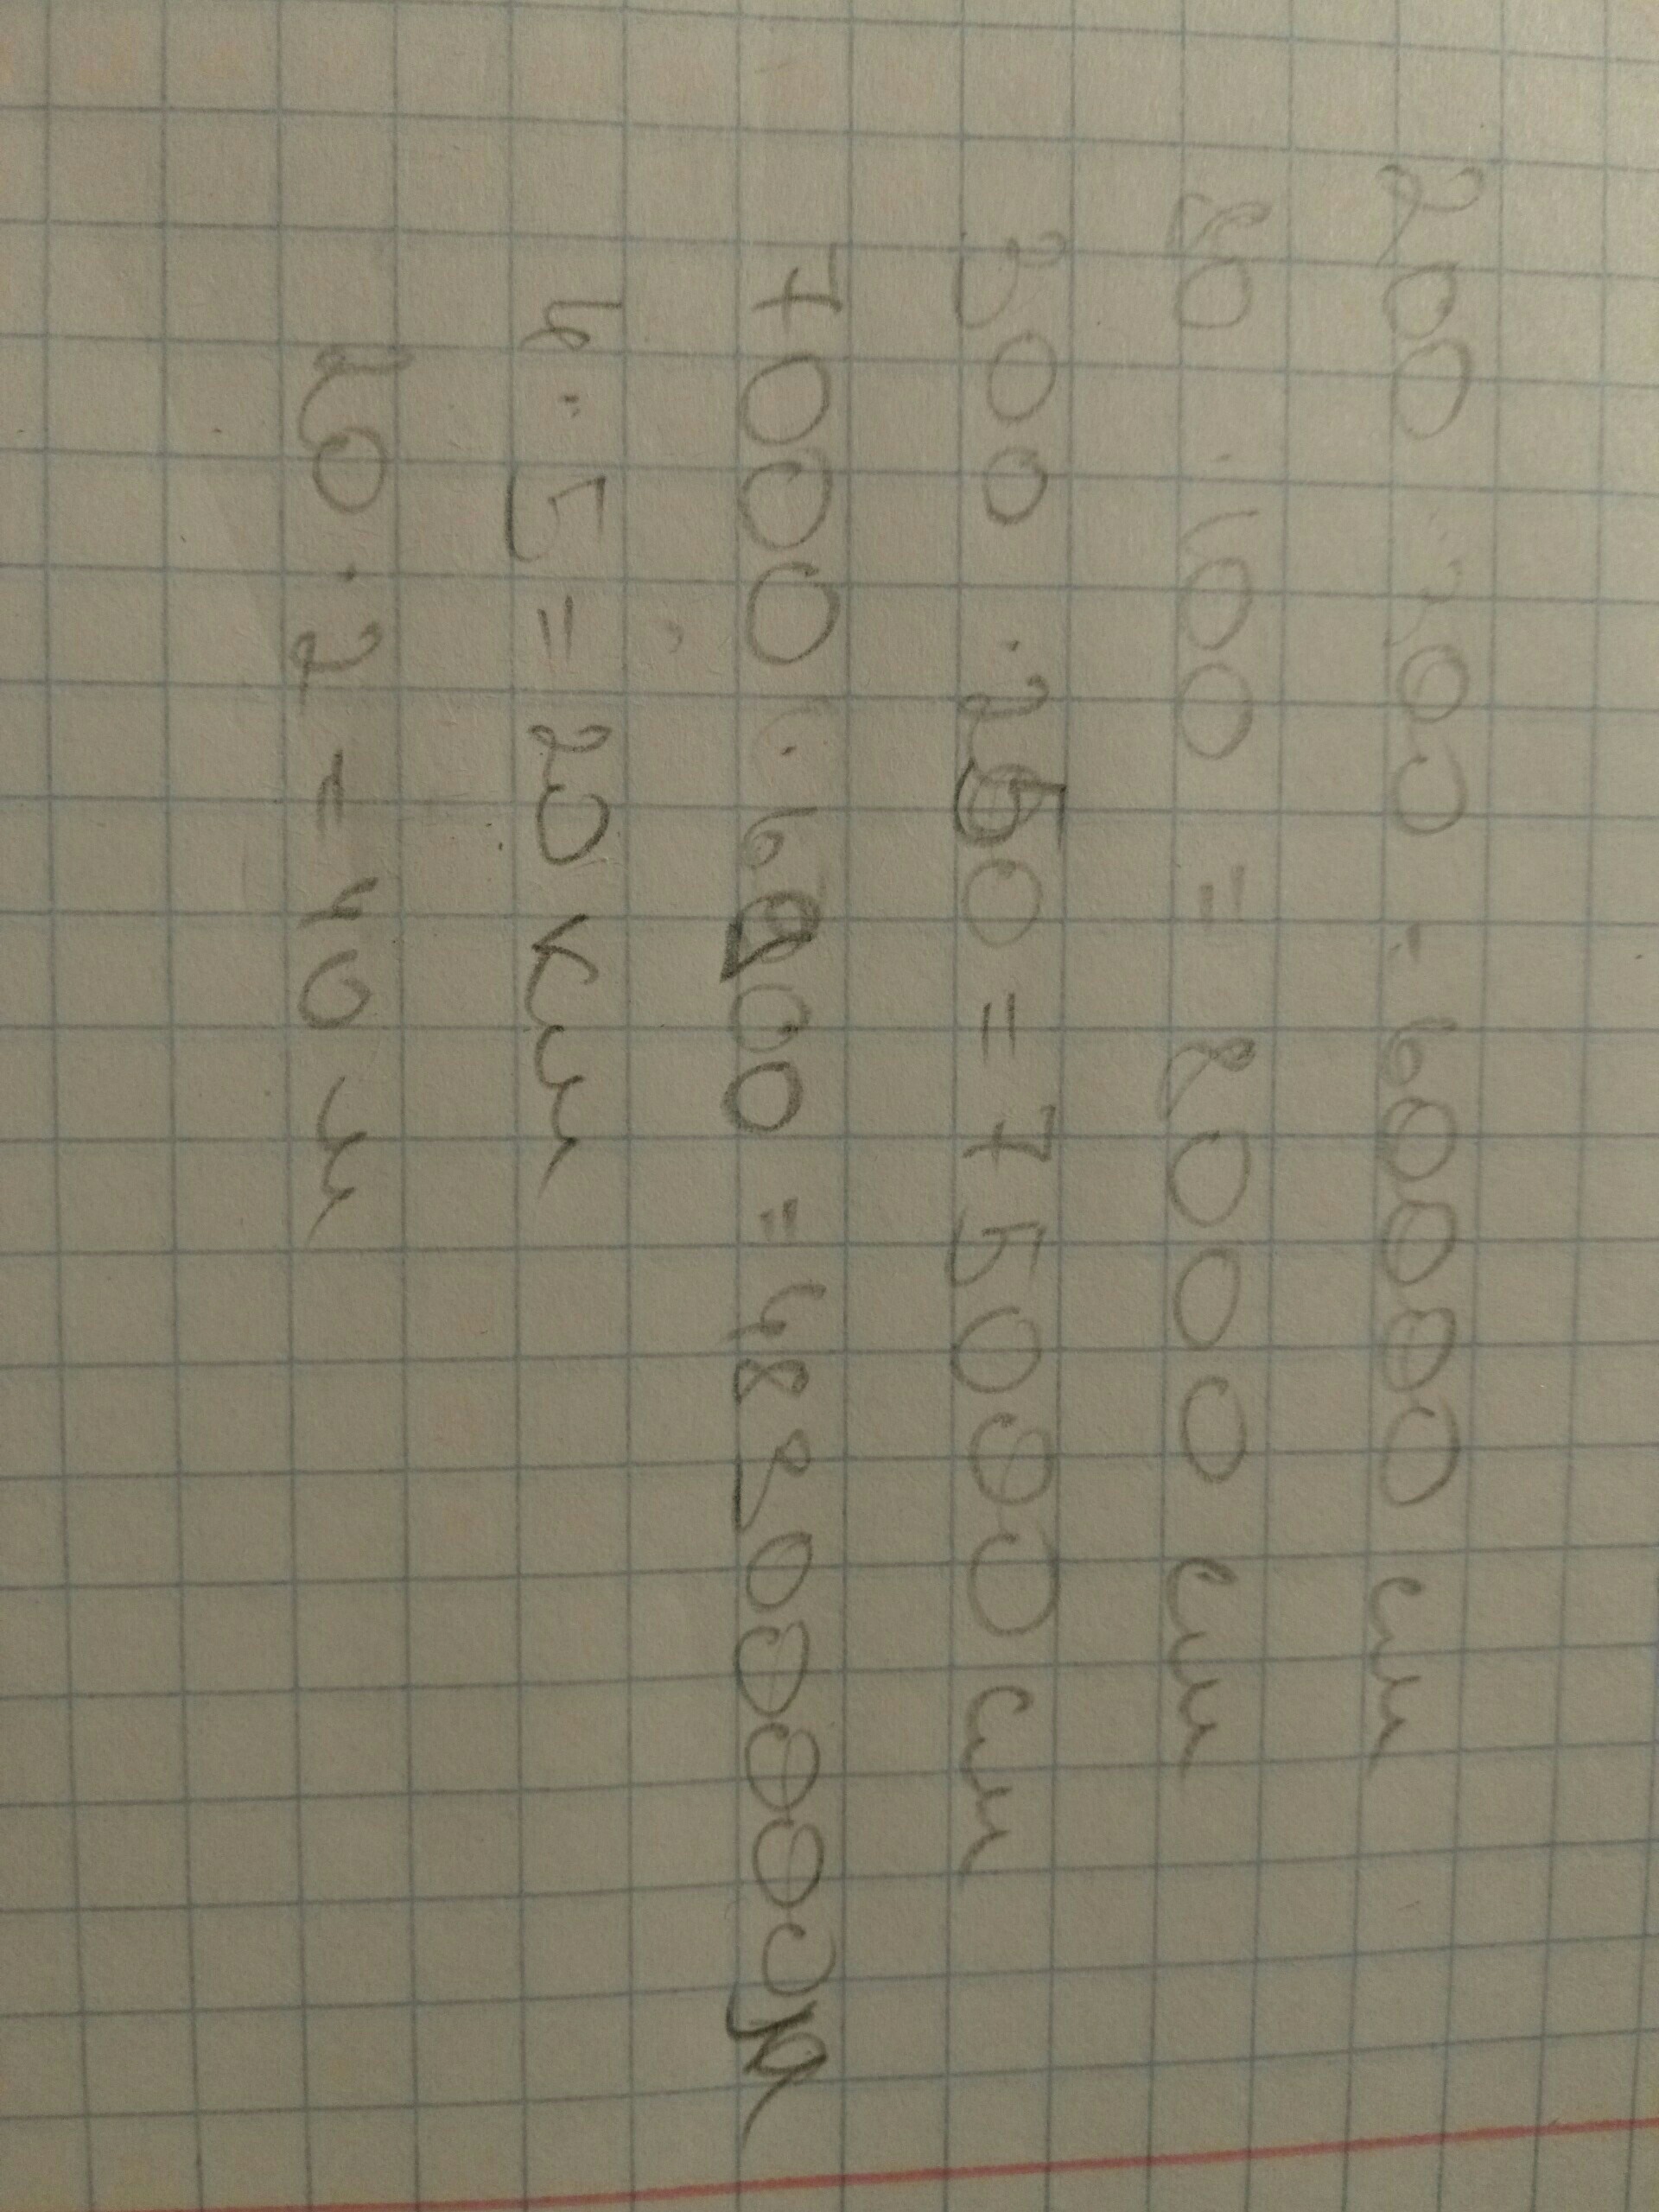 200 · 300 = 60000 см
80 · 100 = 8000 см
300 · 250 = 75000 см
7000 · = 48200000
4 · 5 = 20 км
20 · 2 = 40 м